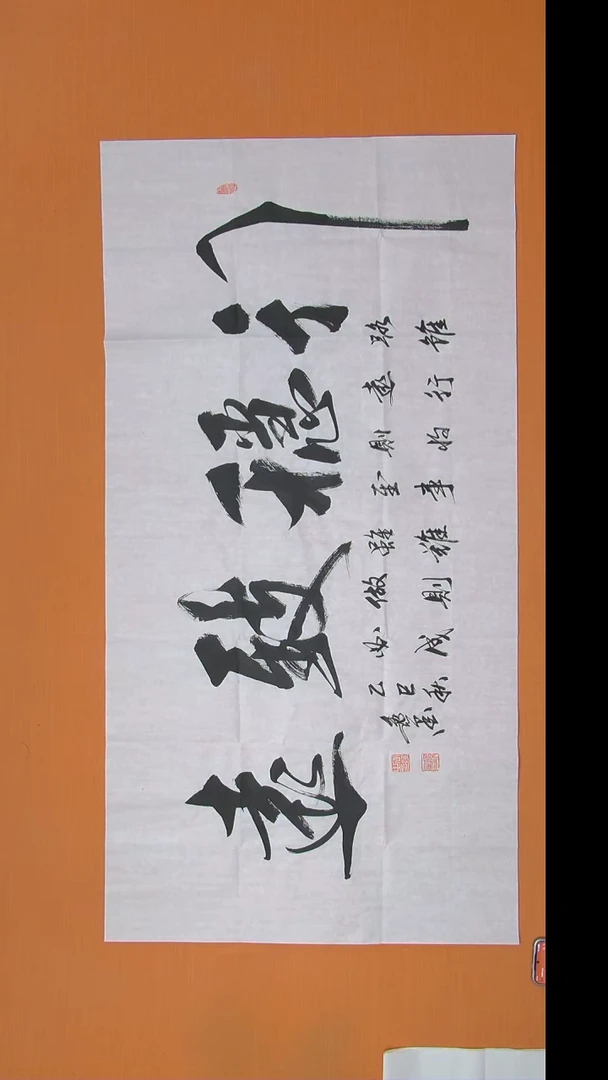 行穩致遠
路雖
遠行
則將
至事
雖難
做則
必成
乙巳秋